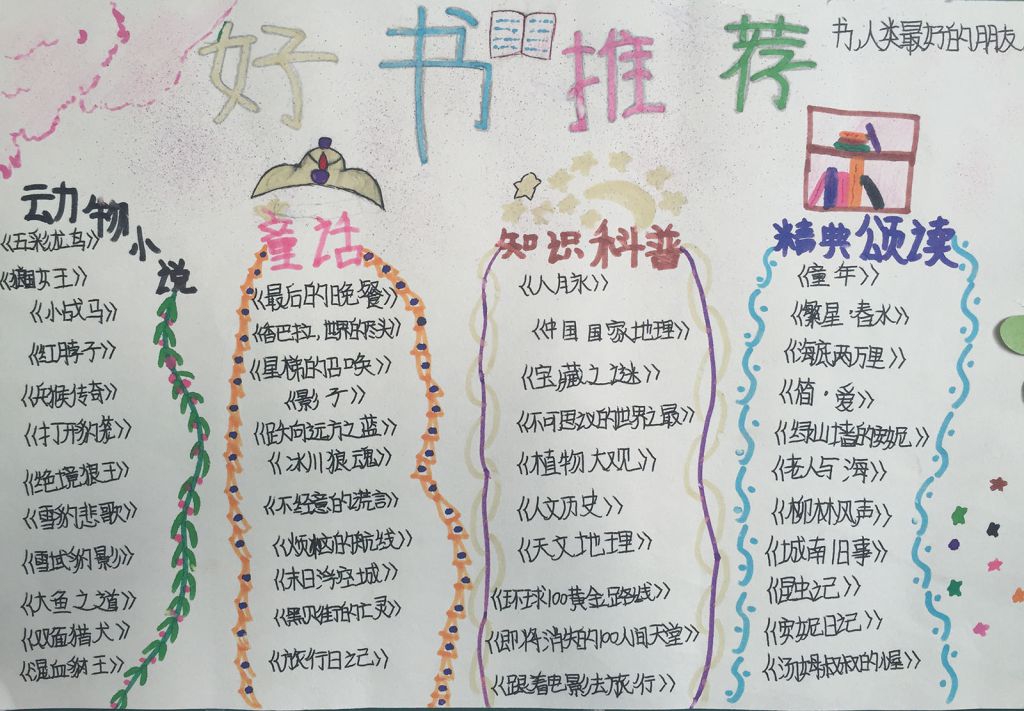 好书推荐
书,人类最好的朋友
动物小说
《五彩龙鸟》
《猫女王》
《小战马》
《红脖子》
《兵猴传奇》
《打开豹笼》
《绝境狼王》
《雪豹悲歌》
《雪域豹影》
《大鱼之道》
《双面猎犬》
《混血豺王》
童话
《最后的晚餐》
《鲁巴拉,世界的尽头》
《星梯的召唤》
《影子》
《跃向远方之蓝》
《冰川狼魂》
《不经意的谎言》
《烦恼的航线》
《末日浮空城》
《黑贝街的亡灵》
《旅行日记》
知识科普
《人月永》
《中国国家地理》
《宝藏之谜》
《不可思议的世界之最》
《植物大观》
《人文历史》
《天文地理》
《环球100黄金路线》
《即将消失的100人间天堂》
《跟着电影去旅行》
精典颂读
《童年》
《繁星·春水》
《海底两万里》
《简·爱》
《绿山墙的安妮》
《老人与海》
《柳林风声》
《城南旧事》
《昆虫记》
《安妮日记》
《汤姆叔叔的小屋》